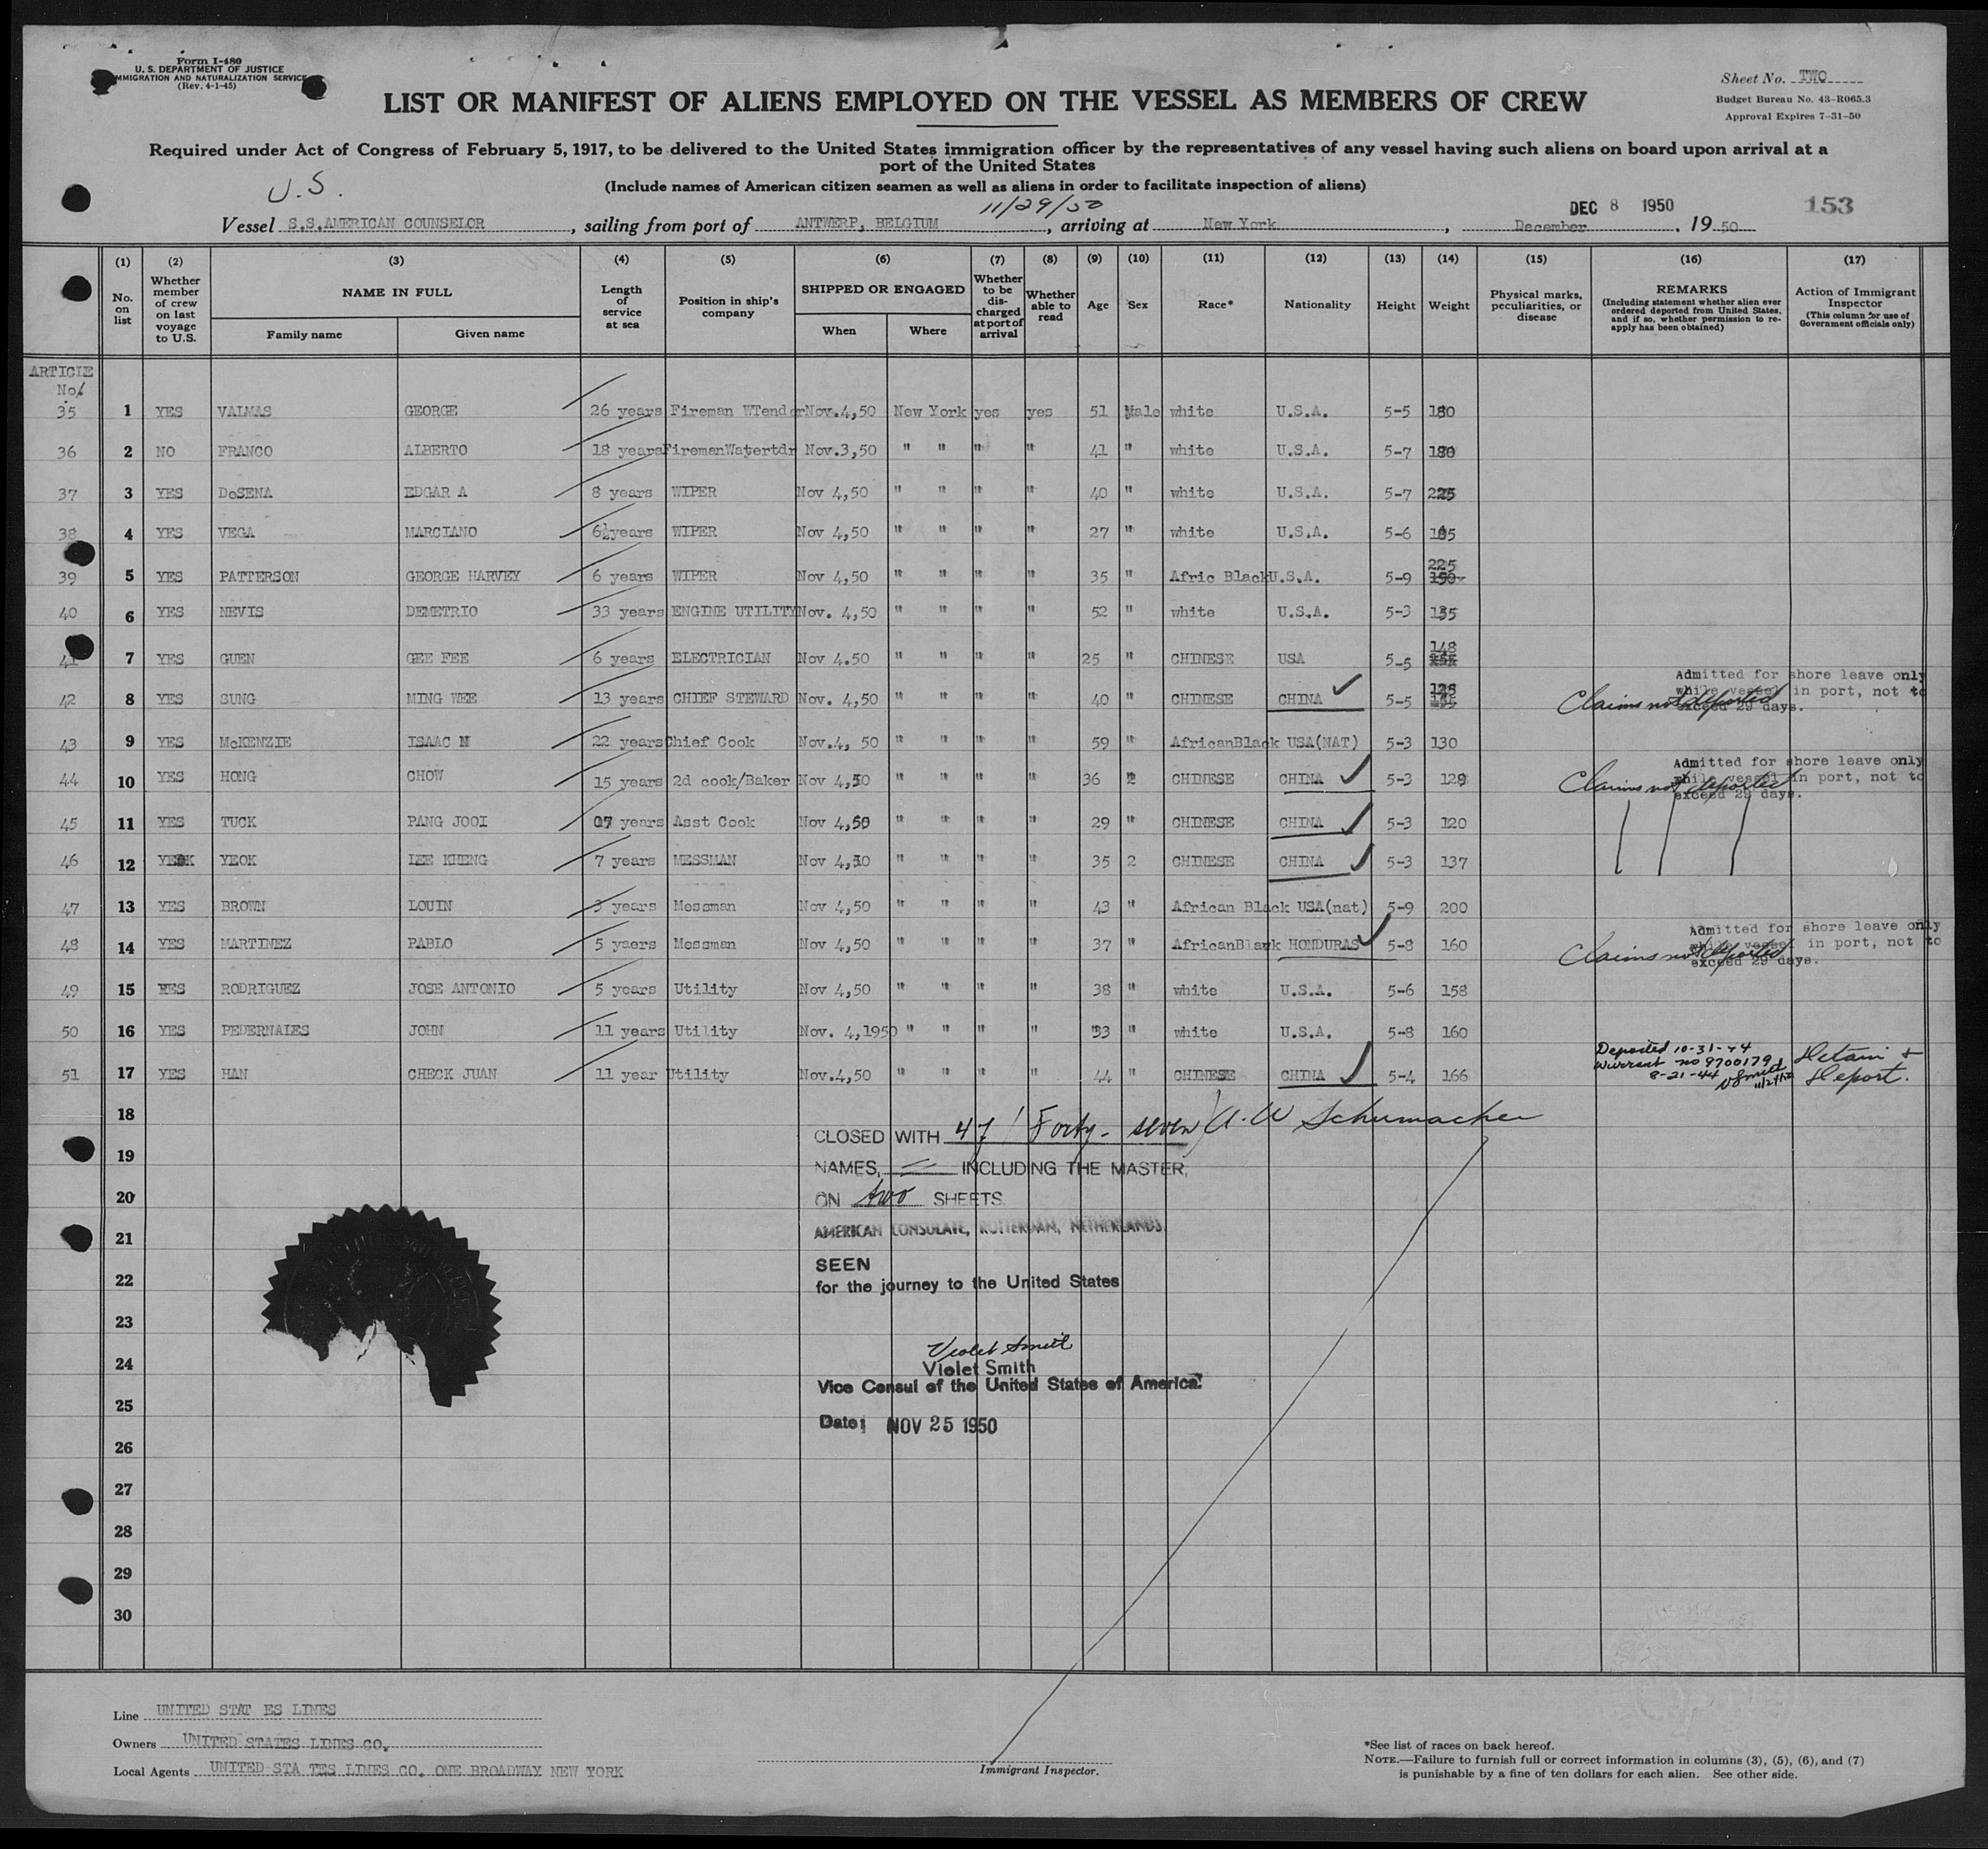 Form I-480
U. S. DEPARTMENT OF JUSTICE
IMMIGRATION AND NATURALIZATION SERVICE
(Rev. 4-1-45)
Sheet No. TWO
Budget Bureau No. 43-R065.3
Approval Expires 7-31-50
LIST OR MANIFEST OF ALIENS EMPLOYED ON THE VESSEL AS MEMBERS OF CREW
Required under Act of Congress of February 5, 1917, to be delivered to the United States immigration officer by the representatives of any vessel having such aliens on board upon arrival at a
port of the United States
(Include names of American citizen seamen as well as aliens in order to facilitate inspection of aliens)
U.S.
11/29/50
DEC 8 1950
153
Vessel S.S.AMERICAN COUNSELOR, sailing from port of ANTWERP, BELGIUM, arriving at New York, December, 1950
(1) No. on list
(2) Whether member of crew on last voyage to U.S.
(3) NAME IN FULL
Family name
Given name
(4) Length of service at sea
(5) Position in ship's company
(6) SHIPPED OR ENGAGED
When
Where
(7) Whether to be discharged at port of arrival
(8) Whether able to read
(9) Age
(10) Sex
(11) Race*
(12) Nationality
(13) Height
(14) Weight
(15) Physical marks, peculiarities, or disease
(16) REMARKS
(Including statement whether alien ever ordered deported from United States, and if so, whether permission to re-apply has been obtained)
(17) Action of Immigrant Inspector
(This column for use of Government officials only)
ARTICLE
No.
35 1 YES VALMAS GEORGE 26 years Fireman WTender Nov.4,50 New York yes yes 51 Male white U.S.A. 5-5 180
36 2 NO FRANCO ALBERTO 18 years FiremanWatertdr Nov.3,50 " " " " 41 " white U.S.A. 5-7
37 3 YES DeSENA EDGAR A 8 years WIPER Nov 4,50 " " " " 40 " white U.S.A. 5-7 225
38 4 YES VEGA MARCIANO 6½years WIPER Nov 4,50 " " " " 27 " white U.S.A. 5-6
39 5 YES PATTERSON GEORGE HARVEY 6 years WIPER Nov 4,50 " " " " 35 " Afric Black U.S.A. 5-9 225
40 6 YES NEVIS DEMETRIO 33 years ENGINE UTILITY Nov. 4,50 " " " " 52 " white U.S.A. 5-3 135
41 7 YES GUEN GEE FEE 6 years ELECTRICIAN Nov 4.50 " " " " 25 " CHINESE USA 5-5 148
42 8 YES SUNG MING WEE 13 years CHIEF STEWARD Nov. 4,50 " " " " 40 " CHINESE CHINA 5-5
Admitted for shore leave only
while vessel in port, not to
exceed 29 days.
Claims not deported
43 9 YES McKENZIE ISAAC N 22 years Chief Cook Nov.4, 50 " " " " 59 " AfricanBlack USA(NAT) 5-3 130
44 10 YES HONG CHOW 15 years 2d cook/Baker Nov 4,50 " " " " 36 2 CHINESE CHINA 5-3 128
Admitted for shore leave only
while vessel in port, not to
exceed 29 days.
Claims not deported
45 11 YES TUCK PANG JOOI 07 years Asst Cook Nov 4,50 " " " " 29 " CHINESE CHINA 5-3 120
46 12 YEOK YEOK LEE KHENG 7 years MESSMAN Nov 4,50 " " " " 35 2 CHINESE CHINA 5-3 137
47 13 YES BROWN LOUIN 3 years Messman Nov 4,50 " " " " 43 " African Black USA(nat) 5-9 200
48 14 YES MARTINEZ PABLO 5 yaers Messman Nov 4,50 " " " " 37 " AfricanBlavk HONDURAS 5-8 160
Admitted for shore leave only
while vessel in port, not to
exceed 29 days.
Claims not deported
49 15 YES RODRIGUEZ JOSE ANTONIO 5 years Utility Nov 4,50 " " " " 38 " white U.S.A. 5-6 158
50 16 YES PEDERNALES JOHN 11 years Utility Nov. 4,1950 " " " " 33 " white U.S.A. 5-8 160
51 17 YES HAN CHECK JUAN 11 year Utility Nov.4,50 " " " " 44 " CHINESE CHINA 5-4 166
Deported 10-31-44
Warrant no 9700179
8-21-44 VSmith
Detain +
Deport.
18
19
20
21
22
23
24
25
26
27
28
29
30
CLOSED WITH 47 (Forty-seven) A. W Schumacher
NAMES, INCLUDING THE MASTER,
ON two SHEETS
AMERICAN CONSULATE, ROTTERDAM, NETHERLANDS.
SEEN
for the journey to the United States
Violet Smith
Violet Smith
Vice Consul of the United States of America
Date: NOV 25 1950
Line UNITED STAT ES LINES
Owners UNITED STATES LINES CO.
Local Agents UNITED STA TES LINES CO. ONE BROADWAY NEW YORK
Immigrant Inspector.
*See list of races on back hereof.
NOTE.—Failure to furnish full or correct information in columns (3), (5), (6), and (7)
is punishable by a fine of ten dollars for each alien. See other side.